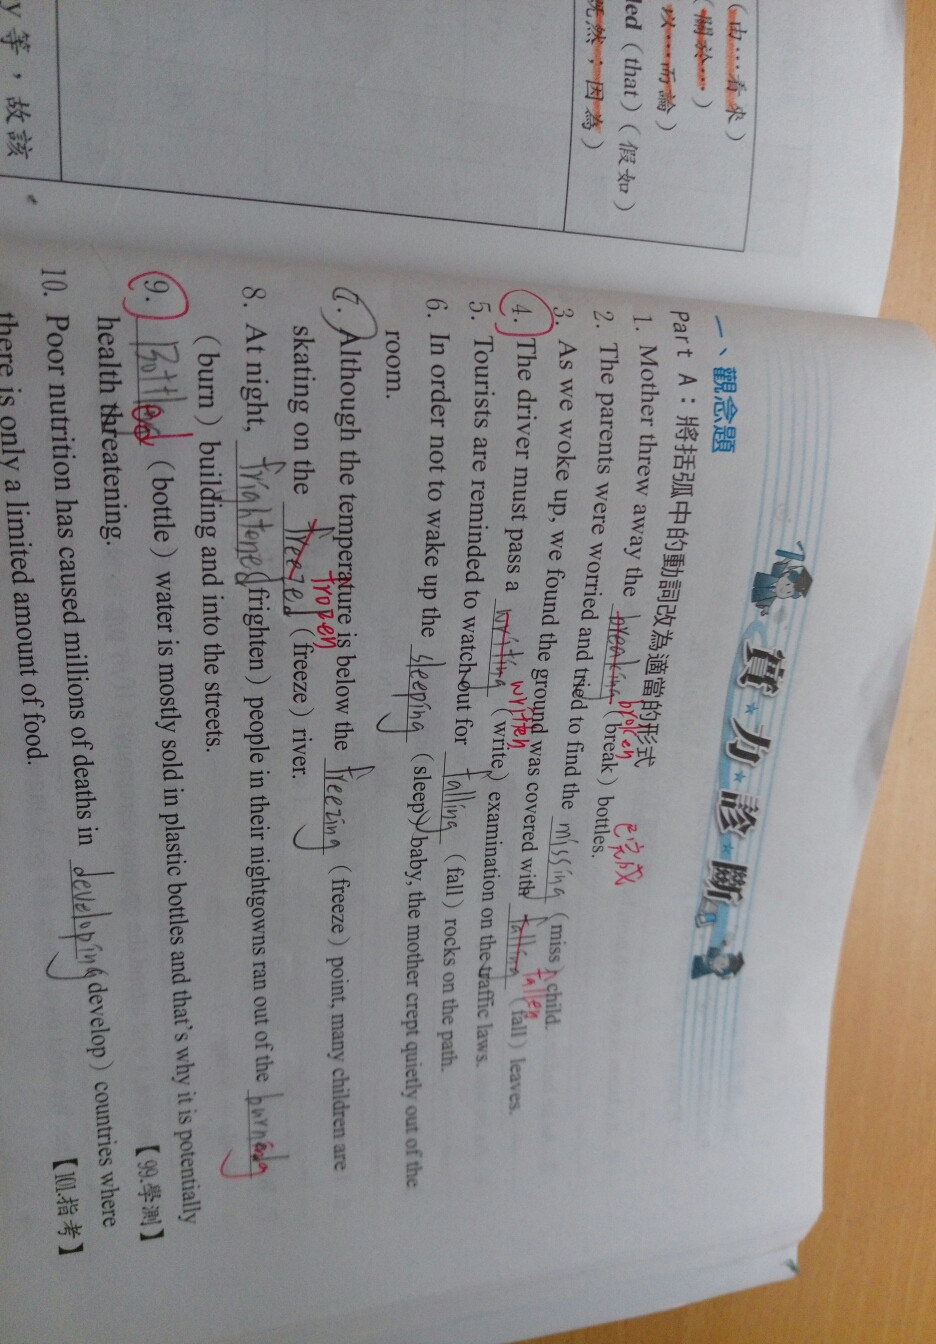 (由…看來)
(關於…)
以…而論)
led (that) (假如)
既然；因為)
y 等，故該
實力診斷
一、觀念題
Part A：將括弧中的動詞改為適當的形式
1. Mother threw away the breaking broken (break) bottles. 已完成
2. The parents were worried and tried to find the missing (miss) child.
3. As we woke up, we found the ground was covered with falling fallen (fall) leaves.
4. The driver must pass a writing written (write) examination on the traffic laws.
5. Tourists are reminded to watch out for falling (fall) rocks on the path.
6. In order not to wake up the sleeping (sleep) baby, the mother crept quietly out of the
room.
7. Although the temperature is below the freezing (freeze) point, many children are
skating on the freezed frozen (freeze) river.
8. At night, frightoned frighten) people in their nightgowns ran out of the burning
(burn) building and into the streets.
9. Bottled (bottle) water is mostly sold in plastic bottles and that's why it is potentially
health threatening. 【99.學測】
10. Poor nutrition has caused millions of deaths in developing develop) countries where
there is only a limited amount of food. 【101.指考】